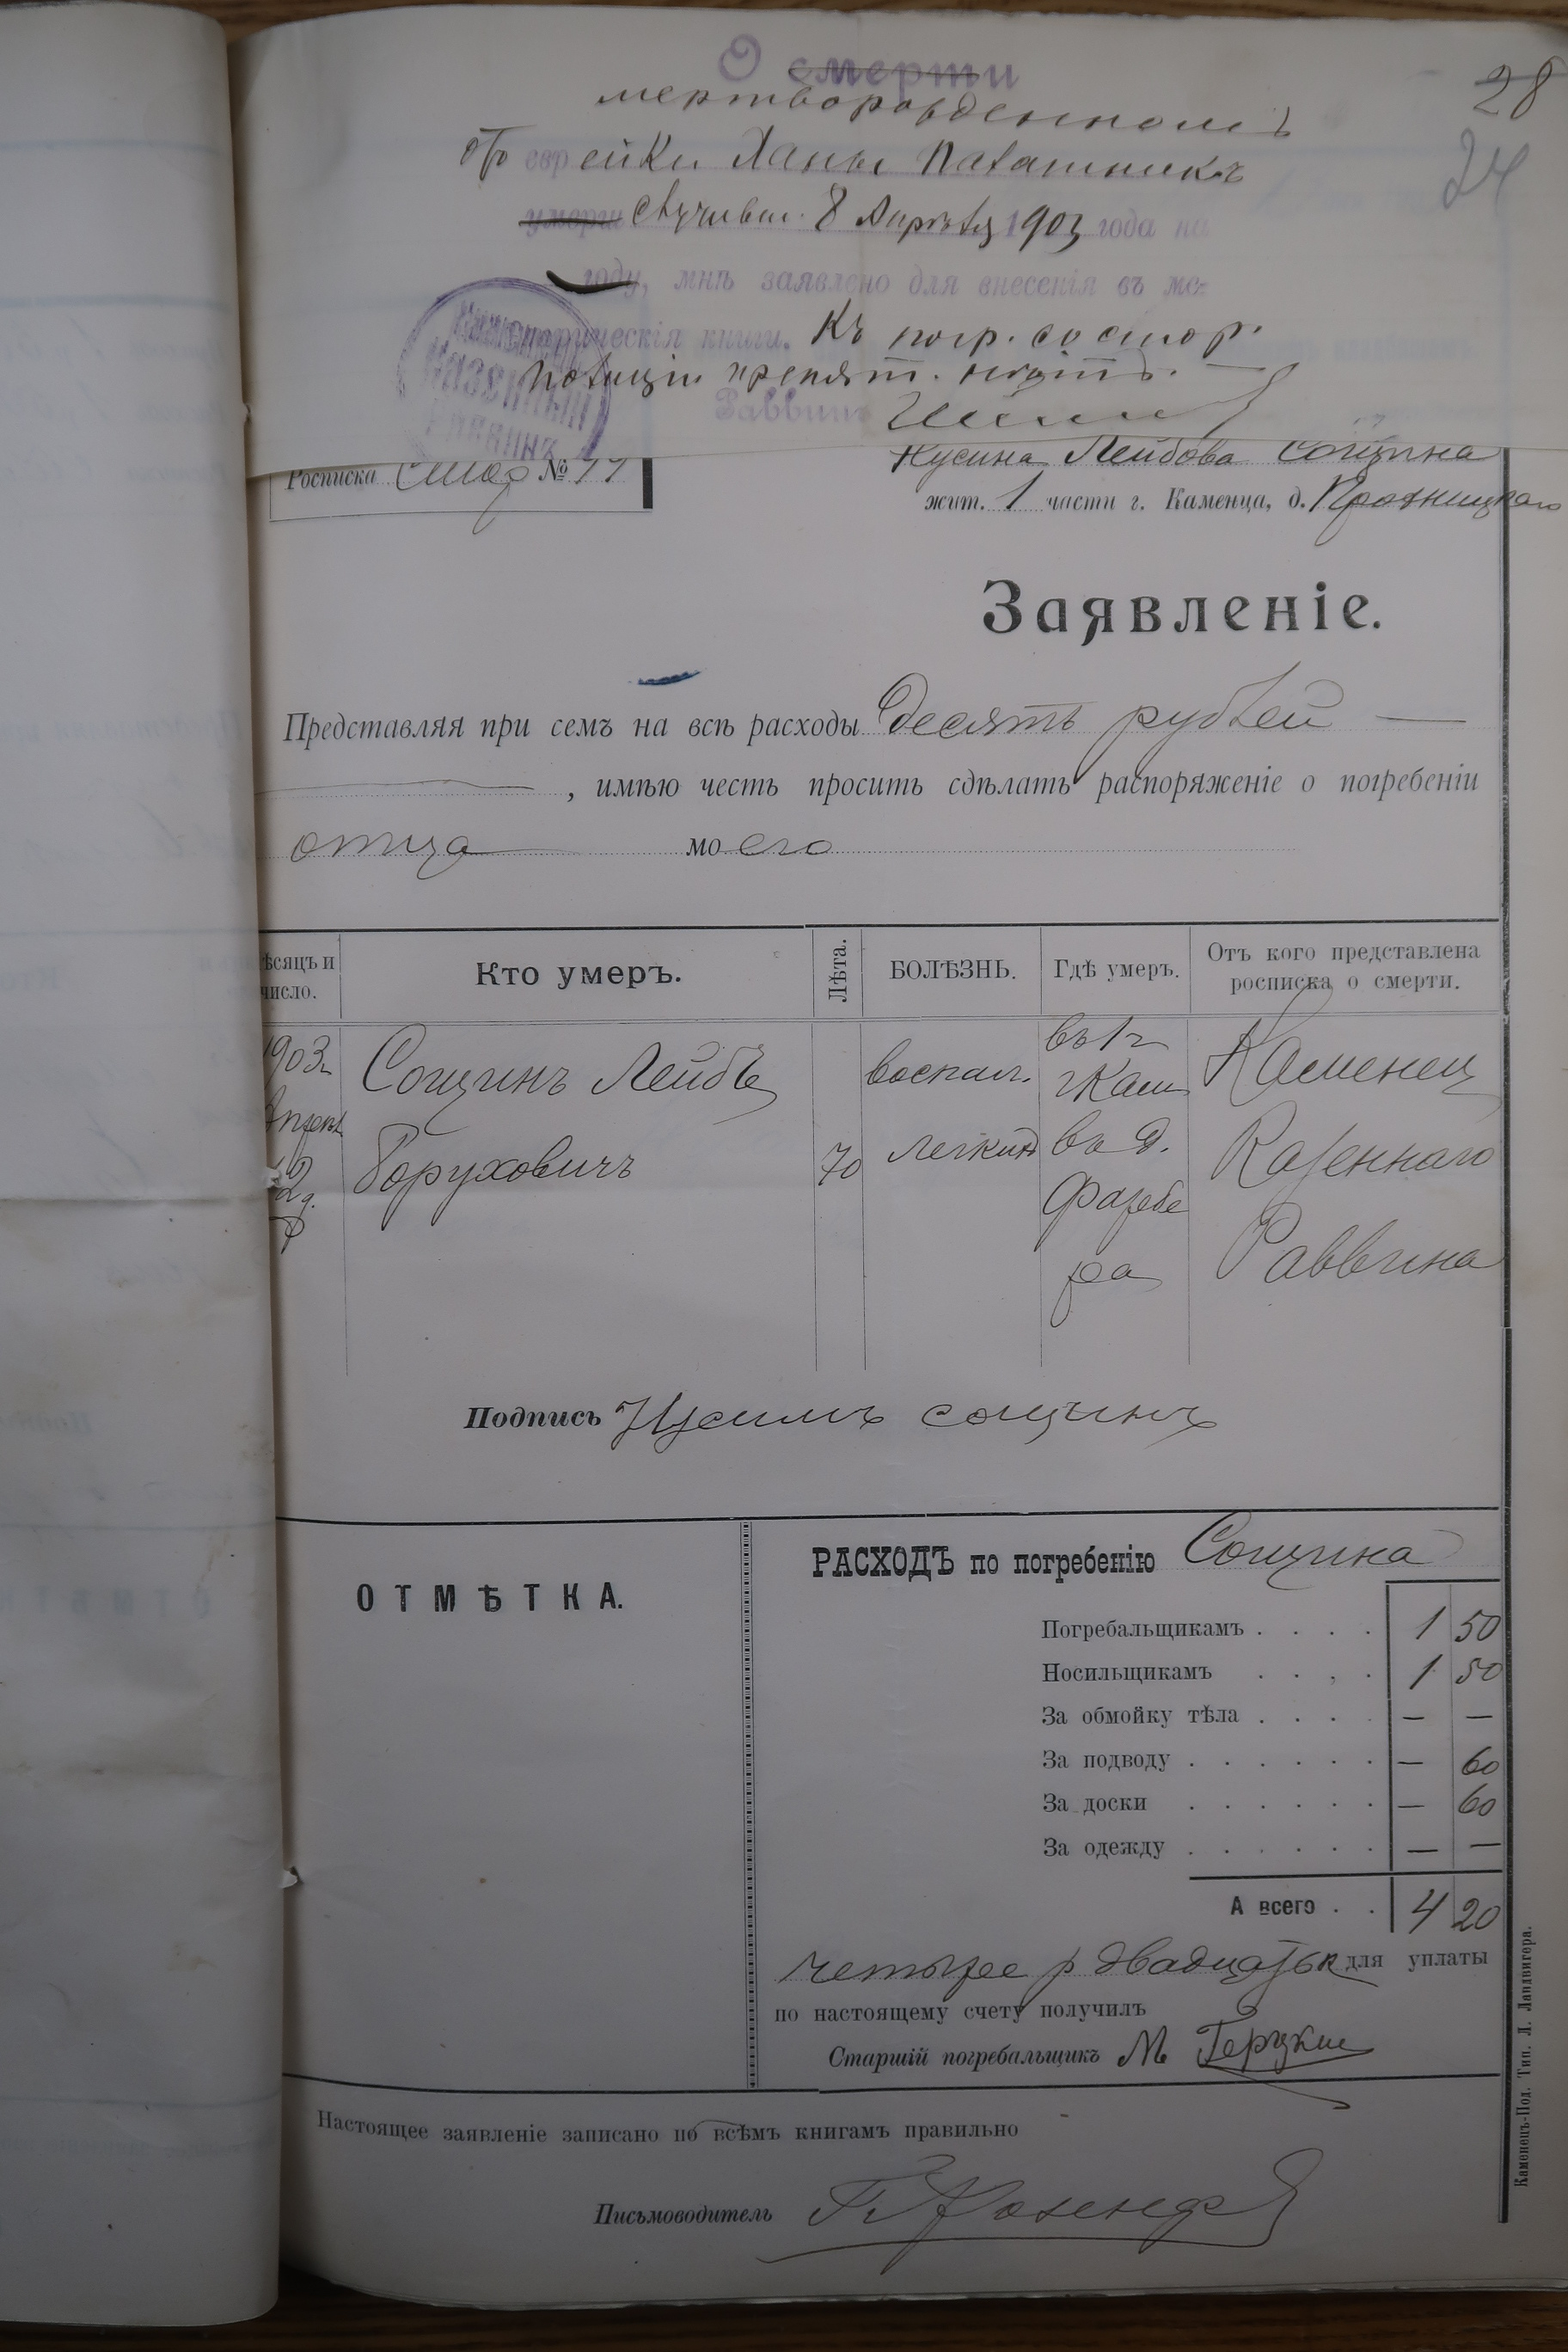 28
24
О смерти
мертворожденномъ
отъ еврейки Ханы Паташникъ
умерш случивш. 8 Апрѣля 1903 года на
году, мнѣ заявлено для внесенія въ ме-
трическія книги. Къ погр. со стор.
полиціи препят. нѣтъ.
Казенный
Раввинъ
Раввинъ
Росписка №
Нусина Лейбова Сощина
жит. 1 части г. Каменца, д.
Заявленіе.
Представляя при семъ на всѣ расходы Десять рублей —
, имѣю честь просить сдѣлать распоряженіе о погребеніи
отца моего
ѣсяцъ и число.
Кто умеръ.
Лѣта.
БОЛѢЗНЬ.
Гдѣ умеръ.
Отъ кого представлена росписка о смерти.
1903г
Апрѣл
12 д.
Сощинъ Лейбъ
Боруховичъ
70
воспал.
легкихъ
въ 1 ч
г Кам
въ д.
Фарбе
ра
Каменец
Казеннаго
Раввина
Подпись Нусимъ сощинъ
ОТМѢТКА.
РАСХОДЪ по погребенію Сощина
Погребальщикамъ . . . . 1 50
Носильщикамъ . . . . 1 50
За обмойку тѣла . . . . — —
За подводу . . . . . . — 60
За доски . . . . . . — 60
За одежду . . . . . . — —
А всего . . 4 20
четыре р двадцать к для уплаты
по настоящему счету получилъ
Старшій погребальщикъ М
Настоящее заявленіе записано по всѣмъ книгамъ правильно
Письмоводитель
Каменецъ-Под. Тип. Л. Ландвигера.